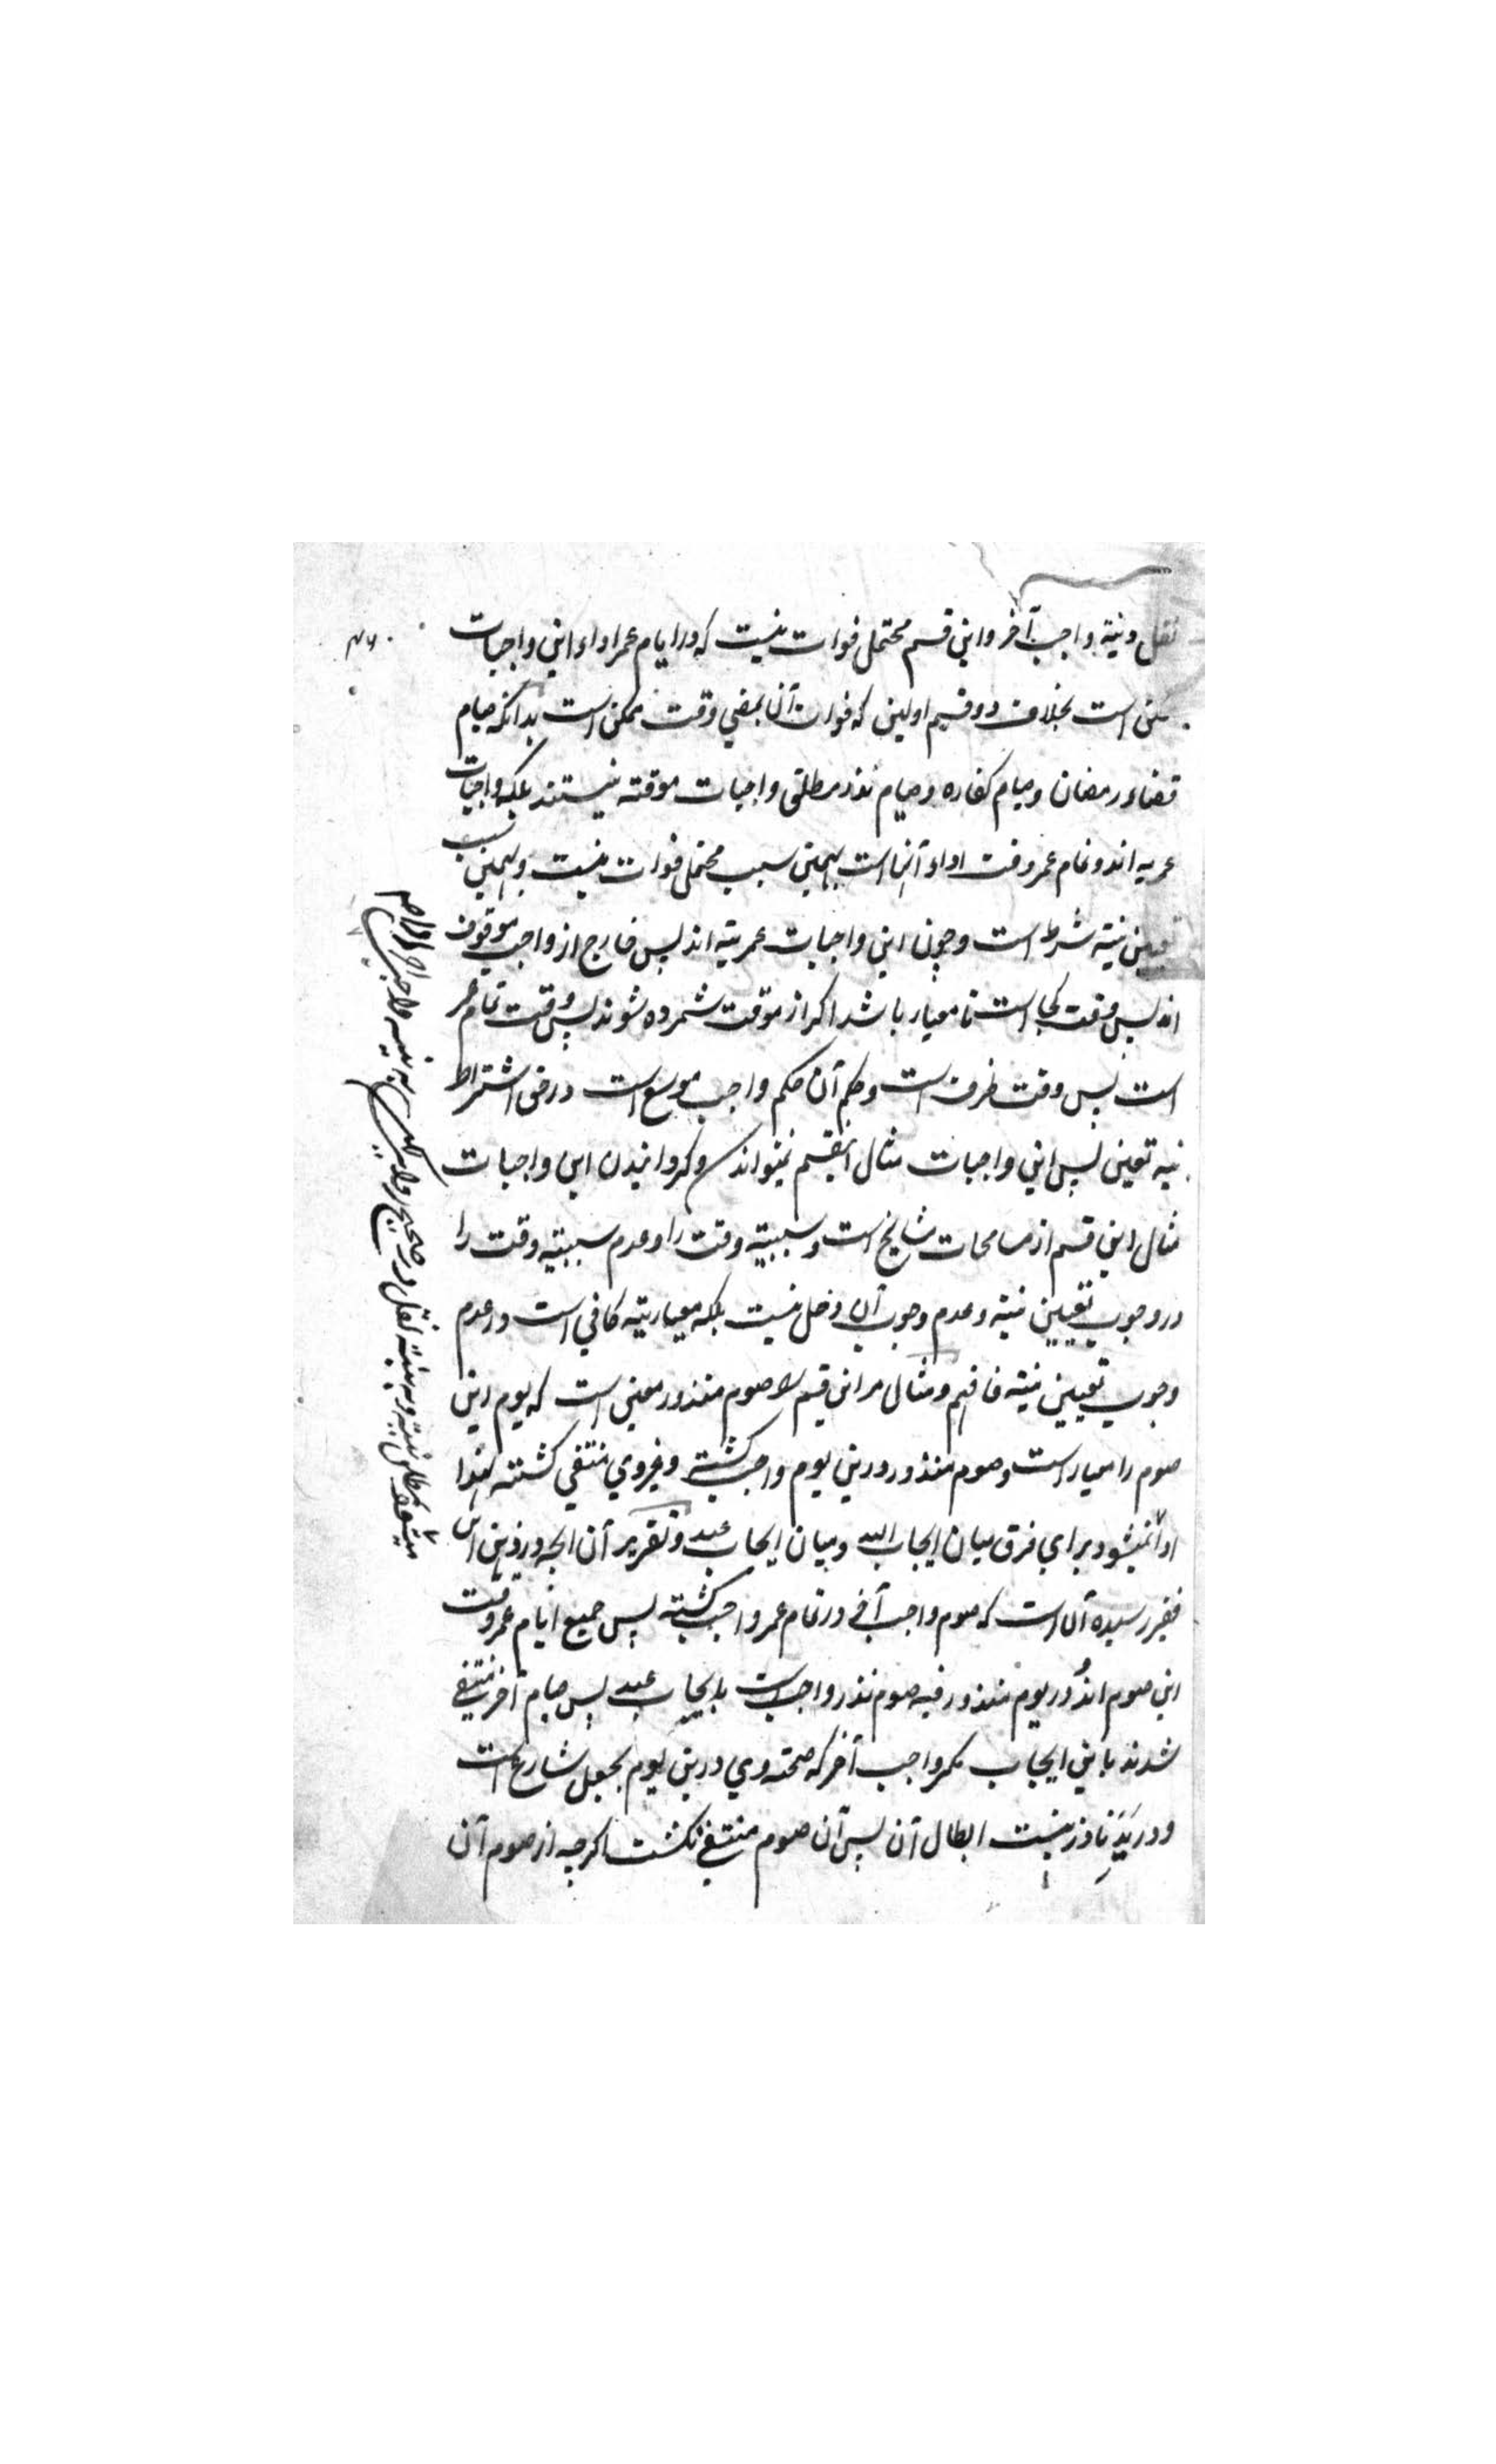 نفل و نیة واجب آخر و این قسم محتمل فوات نیست که در ایام عمر اداء این واجبات
ممکن است بخلاف دو قسم اولین که فوات آن بمضی وقت ممکن است بدانکه صیام
قضاء رمضان و صیام کفاره و صیام نذر مطلق واجبات موقته نیستند بلکه واجبات
عمریه اند و تمام عمر وقت اداء آنها است بهمین سبب محتمل فوات نیست و بهمین سبب
تعین نیته شرط است و چون این واجبات عمریته اند پس خارج از واجب موقوف
اند پس وقت کجا است تا معیار باشد اکر از موقت شمرده شوند پس وقت تمام عمر
است پس وقت ظرف است و حکم آن حکم واجب موسع است در حق اشتراط
نیه تعین پس این واجبات مثال اینقسم نمیتواند و کردانیدن این واجبات
مثال این قسم از مسامحات مشایخ است و سببیته وقت را و عدم سببیته وقت را
در وجوب تعیین نیته و عدم وجوب آن دخل نیست بلکه معیاریته کافی است در عدم
وجوب تعیین نیته فافهم و مثال مر این قسم را صوم منذور معین است که یوم این
صوم را معیار است و صوم منذور درین یوم واجب کشته و غیر وی منتفی کشته لهذا
ادا نمیشود برای فرق میان ایجاب الله و میان ایجاب عبد و تقریر آن انچه در ذهن این
فقیر رسیده آن است که صوم واجب آخر در تمام عمر واجب کشته پس جمیع ایام عمر وقت
این صوم اند و در یوم منذور فیه صوم نذر واجب است بایجاب عبد پس صیام آخر منتفی
شدند باین ایجاب مکر واجب آخر که صحته وی درین یوم بجعل شارع است
و در ید ناذر نیست ابطال آن پس آن صوم منتفی نکشت اکرچه از صوم آن
میشود بمطلق نیته و به نیته نفل در صحیح